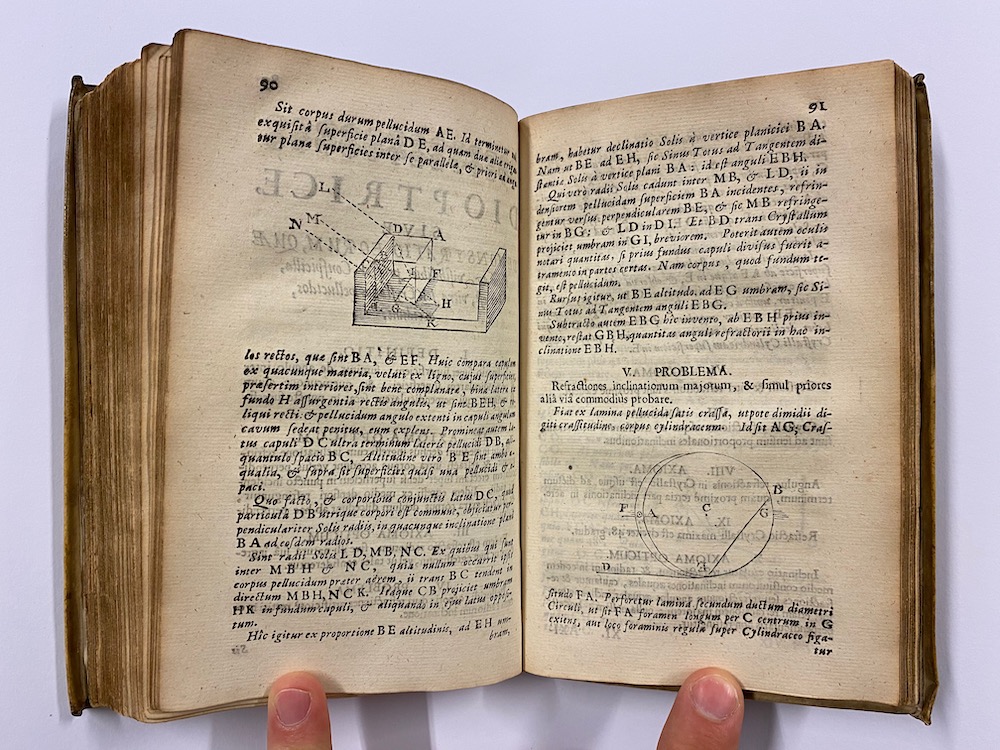 90
Sit corpus durum pellucidum AE. Id terminetur
exquisitâ superficie planâ DE, ad quam duæ aliæ
tur planæ superficies inter se parallelæ, & priori ad
L
N M
D A
F
H
I G
K
los rectos, quæ sint BA, & EF. Huic compara capulum
ex quacunque materia, veluti ex ligno, cujus superficies,
præsertim interiores, sint bene complanatæ, bina latera
fundo H assurgentia rectis angulis, ut sint BEH, &
liqui recti: & pellucidum angulo extenti in capuli angulum
cavum sedeat penitus, eum explent. Promineat autem la-
tus capuli DC ultra terminum lateris pellucidi DB, ali-
quantulo spacio BC, Altitudine verò BE sint ambo
qualia, & supra sit superficies quasi una pellucidi &
paci.
Quo facto, & corporibus conjunctis latus DC, quod
particulâ DB utrique corpori est commune, objiciatur per-
pendiculariter Solis radiis, in quacunque inclinatione plani
BA ad eosdem radios.
Sint radii Solis LD, MB, NC. Ex quibus qui sunt
inter MBH & NC, quia nullum occurrit ipsis
corpus pellucidum præter aërem, ii trans BC tendent in
directum MBH, NCK. Itaque CB projiciet umbram
HK in fundum capuli, & aliquando in ejus latus opposi-
tum.
Hîc igitur ex proportione BE altitudinis, ad EH um-
bram,
91
bram, habetur declinatio Solis à vertice planiciei BA.
Nam ut BE ad EH, sic Sinus Totus ad Tangentem di-
stantiæ Solis à vertice plani BA: id est anguli EBH.
Qui verò radii Solis cadunt inter MB, & LD, ii in
densiorem pellucidam superficiem BA incidentes, refrin-
gentur versus perpendicularem BE, & sic MB refringe-
tur in BG: & LD in DI. Et BD trans Crystallum
projiciet umbram in GI, breviorem. Poterit autem oculis
notari quantitas, si prius fundus capuli divisus fuerit a-
tramento in partes certas. Nam corpus, quod fundum te-
git, est pellucidum.
Rursus igitur, ut BE altitudo ad EG umbram, sic Si-
nus Totus ad Tangentem anguli EBG.
Subtracto autem EBG hîc invento, ab EBH prius in-
vento, restat GBH, quantitas anguli refractorii in hac in-
clinatione EBH.
V. PROBLEMA.
Refractiones inclinationum majorum, & simul priores
aliâ viâ commodius probare.
Fiat ex lamina pellucida satis crassâ, utpote dimidii di-
giti crassitudine, corpus cylindraceum. Id sit AG, Cras-
B
F A C G
D
situdo FA. Perforetur lamina secundum ductum diametri
Circuli, ut sit FA foramen longum per C centrum in G
exiens, aut loco foraminis regula super Cylindraceo figa-
tur